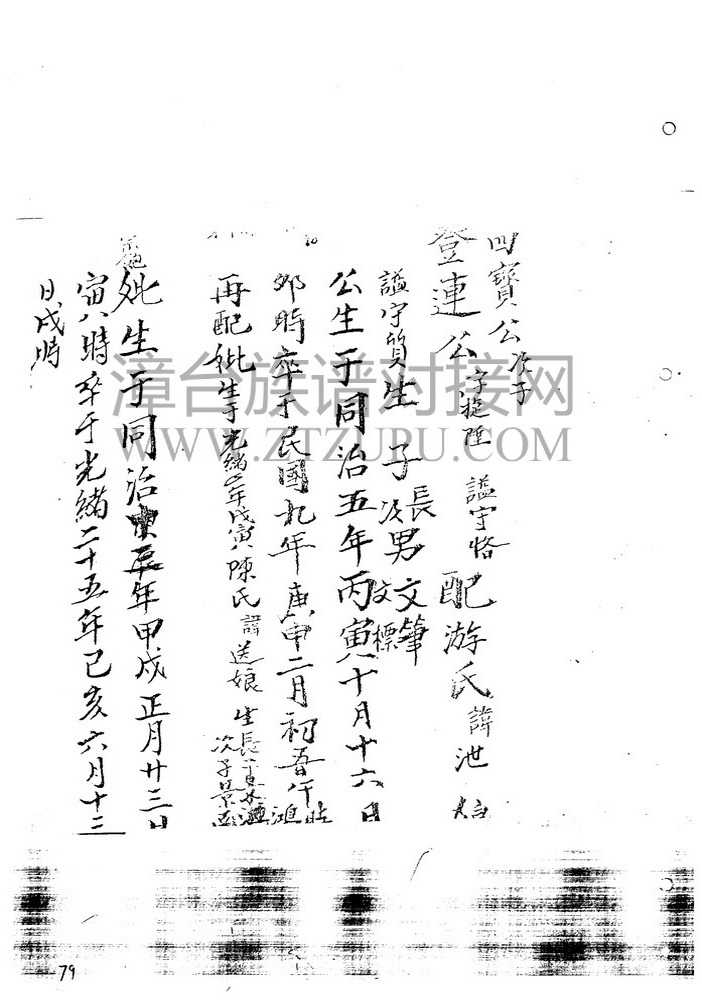 四寶公次子
登連公字挺陞 謚守恪 配游氏諱池
謚守質生子長男文筆
次 文標
公生于同治五年丙寅八十月十六日
卯時卒于民國九年庚申二月初五午時
再配妣生于光緒年戊寅陳氏諱送娘 生長子
次子景
妣生于同治年甲戌正月廿三日
寅時卒于光緒二十五年己亥六月十三
日戌時
漳台族谱对接网
WWW.ZTZUPU.COM
79